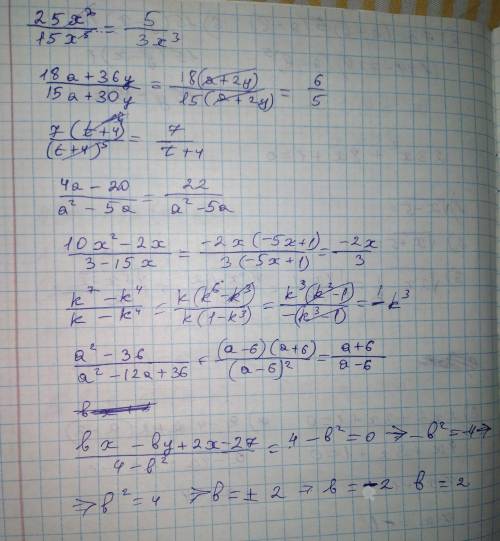 25x²/15x⁵ = 5/3x³
(18a+36y)/(15a+30y) = 18(a+2y)/15(a+2y) = 6/5
7(t+4)⁴/(t+4)⁵ = 7/(t+4)
(4a-20)/(a²-5a) = 22/(a²-5a)
(10x²-2x)/(3-15x) = -2x(-5x+1)/3(-5x+1) = -2x/3
(k⁷-k⁴)/(k-k⁴) = k(k⁶-k³)/k(1-k³) = k³(k³-1)/-(k³-1) = -k³
(a²-36)/(a²-12a+36) = (a-6)(a+6)/(a-6)² = (a+6)/(a-6)
(bx-by+2x-27)/(4-b²) = 4-b²=0 => -b²=-4 =>
=> b²=4 => b=±2 → b=-2 b=2